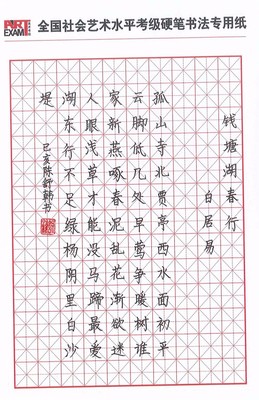 ART EXAM
全国社会艺术水平考级硬笔书法专用纸
钱塘湖春行
白居易
孤山寺北贾亭西水面初平
云脚低几处早莺争暖树谁
家新燕啄春泥乱花渐欲迷
人眼浅草才能没马蹄最爱
湖东行不足绿杨阴里白沙
堤
己亥陈舒韩书